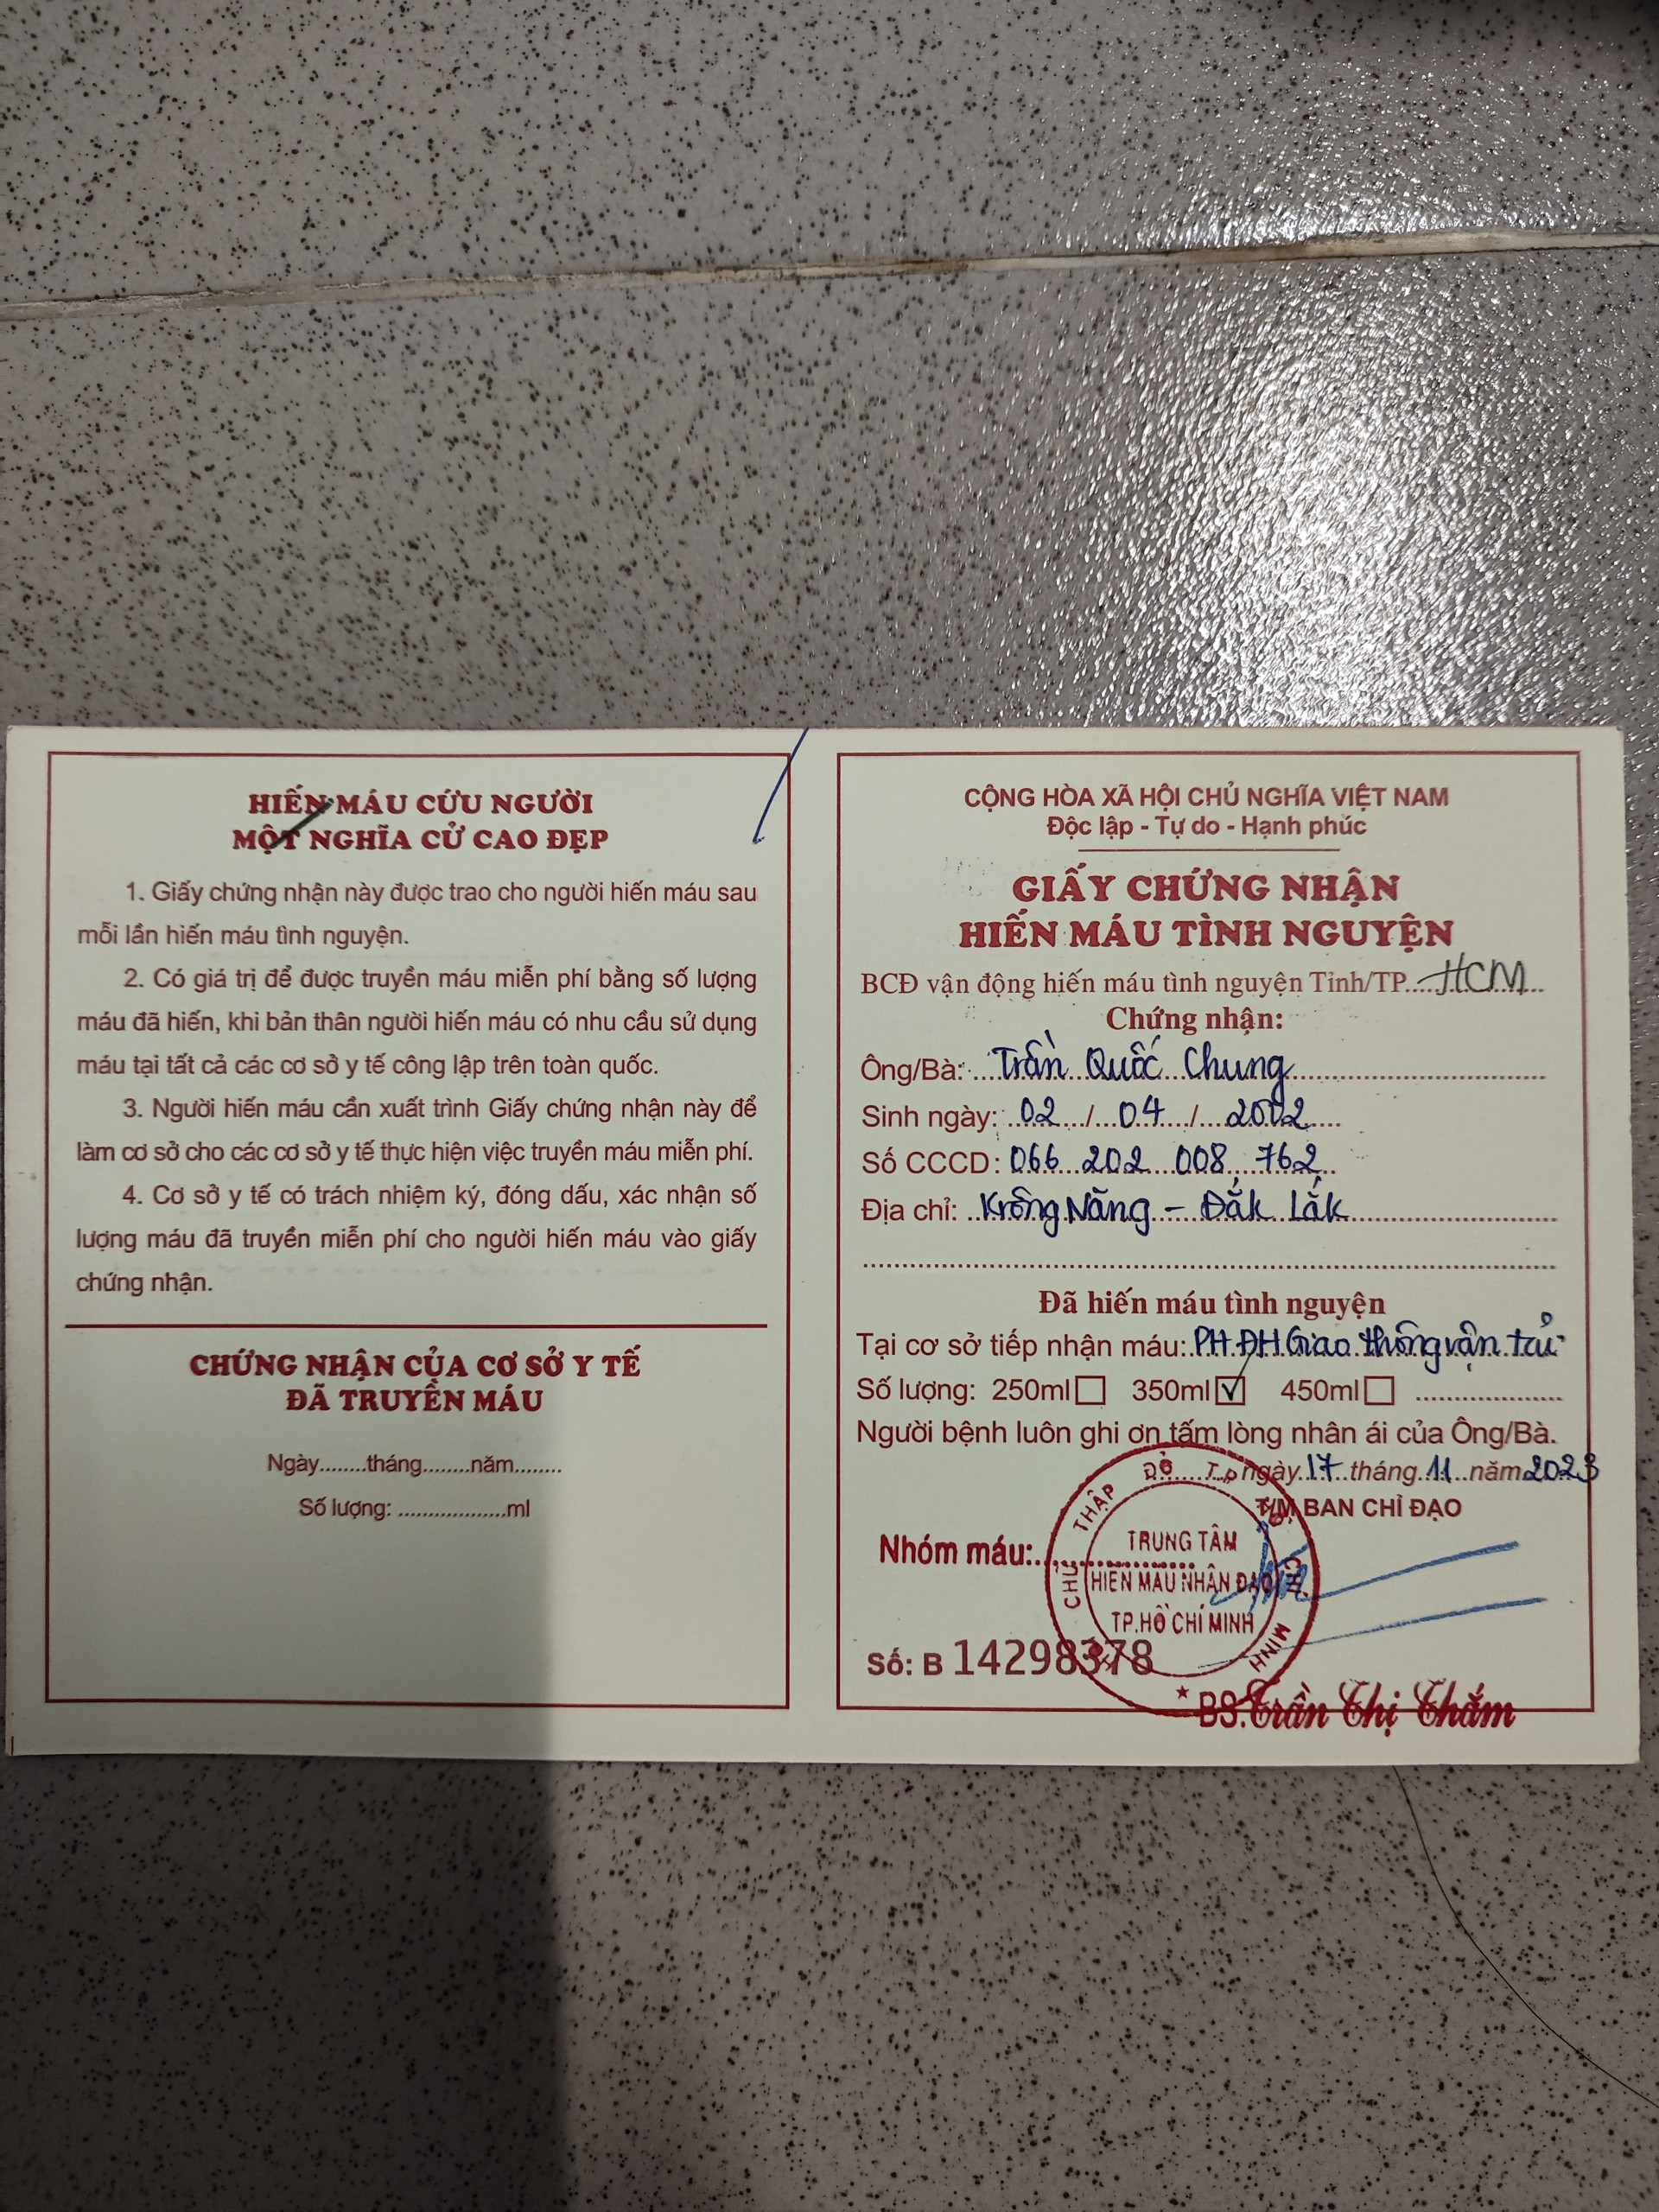 HIẾN MÁU CỨU NGƯỜI
MỘT NGHĨA CỬ CAO ĐẸP
1. Giấy chứng nhận này được trao cho người hiến máu sau
mỗi lần hiến máu tình nguyện.
2. Có giá trị để được truyền máu miễn phí bằng số lượng
máu đã hiến, khi bản thân người hiến máu có nhu cầu sử dụng
máu tại tất cả các cơ sở y tế công lập trên toàn quốc.
3. Người hiến máu cần xuất trình Giấy chứng nhận này để
làm cơ sở cho các cơ sở y tế thực hiện việc truyền máu miễn phí.
4. Cơ sở y tế có trách nhiệm ký, đóng dấu, xác nhận số
lượng máu đã truyền miễn phí cho người hiến máu vào giấy
chứng nhận.
CHỨNG NHẬN CỦA CƠ SỞ Y TẾ
ĐÃ TRUYỀN MÁU
Ngày........tháng........năm........
Số lượng: ...................ml
CỘNG HÒA XÃ HỘI CHỦ NGHĨA VIỆT NAM
Độc lập - Tự do - Hạnh phúc
GIẤY CHỨNG NHẬN
HIẾN MÁU TÌNH NGUYỆN
BCĐ vận động hiến máu tình nguyện Tỉnh/TP. HCM
Chứng nhận:
Ông/Bà: Trần Quốc Chung
Sinh ngày: 02 / 04 / 2002
Số CCCD: 066 202 008 762
Địa chỉ: Krông Năng - Đắk Lắk
Đã hiến máu tình nguyện
Tại cơ sở tiếp nhận máu: PH ĐH Giao thông vận tải
Số lượng: 250ml 350ml ✓ 450ml
Người bệnh luôn ghi ơn tấm lòng nhân ái của Ông/Bà.
ngày 17 tháng 11 năm 2023
T/M BAN CHỈ ĐẠO
Nhóm máu:
CHỮ THẬP ĐỎ T.P HỒ CHÍ MINH
TRUNG TÂM
HIẾN MÁU NHÂN ĐẠO
TP.HỒ CHÍ MINH
Số: B 14298378
BS. Trần Thị Thắm